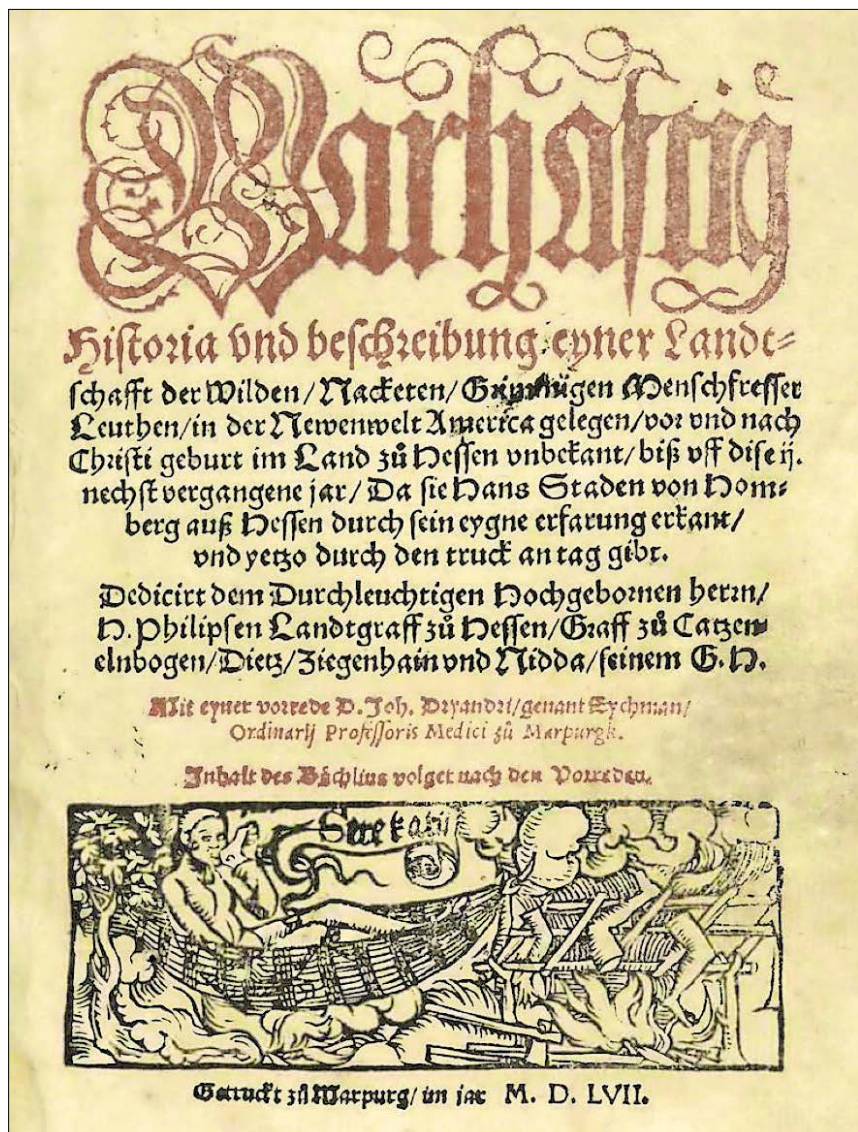 Warhaftig
Historia vnd beschreibung eyner Landt⸗
schafft der Wilden/Nacketen/Grimmigen Menschfresser
Leuthen/in der Newenwelt America gelegen/vor vnd nach
Christi geburt im Land zů Hessen vnbekant/biß vff dise ij.
nechst vergangene jar/Da sie Hans Staden von Hom⸗
berg auß Hessen durch sein eygne erfarung erkant/
vnd yetzo durch den truck an tag gibt.
Dedicirt dem Durchleuchtigen Hochgebornen herrn/
H. Philipsen Landtgraff zů Hessen/Graff zů Catzen⸗
elnbogen/Dietz/Ziegenhain vnd Nidda/seinem G.H.
Mit eyner vorrede D. Joh. Dryandri/genant Eychman/
Ordinarij Professoris Medici zů Marpurgk.
Inhalt des Bůchlins volget nach den Vorreden.
Getruckt zů Marpurg/im jar M. D. LVII.